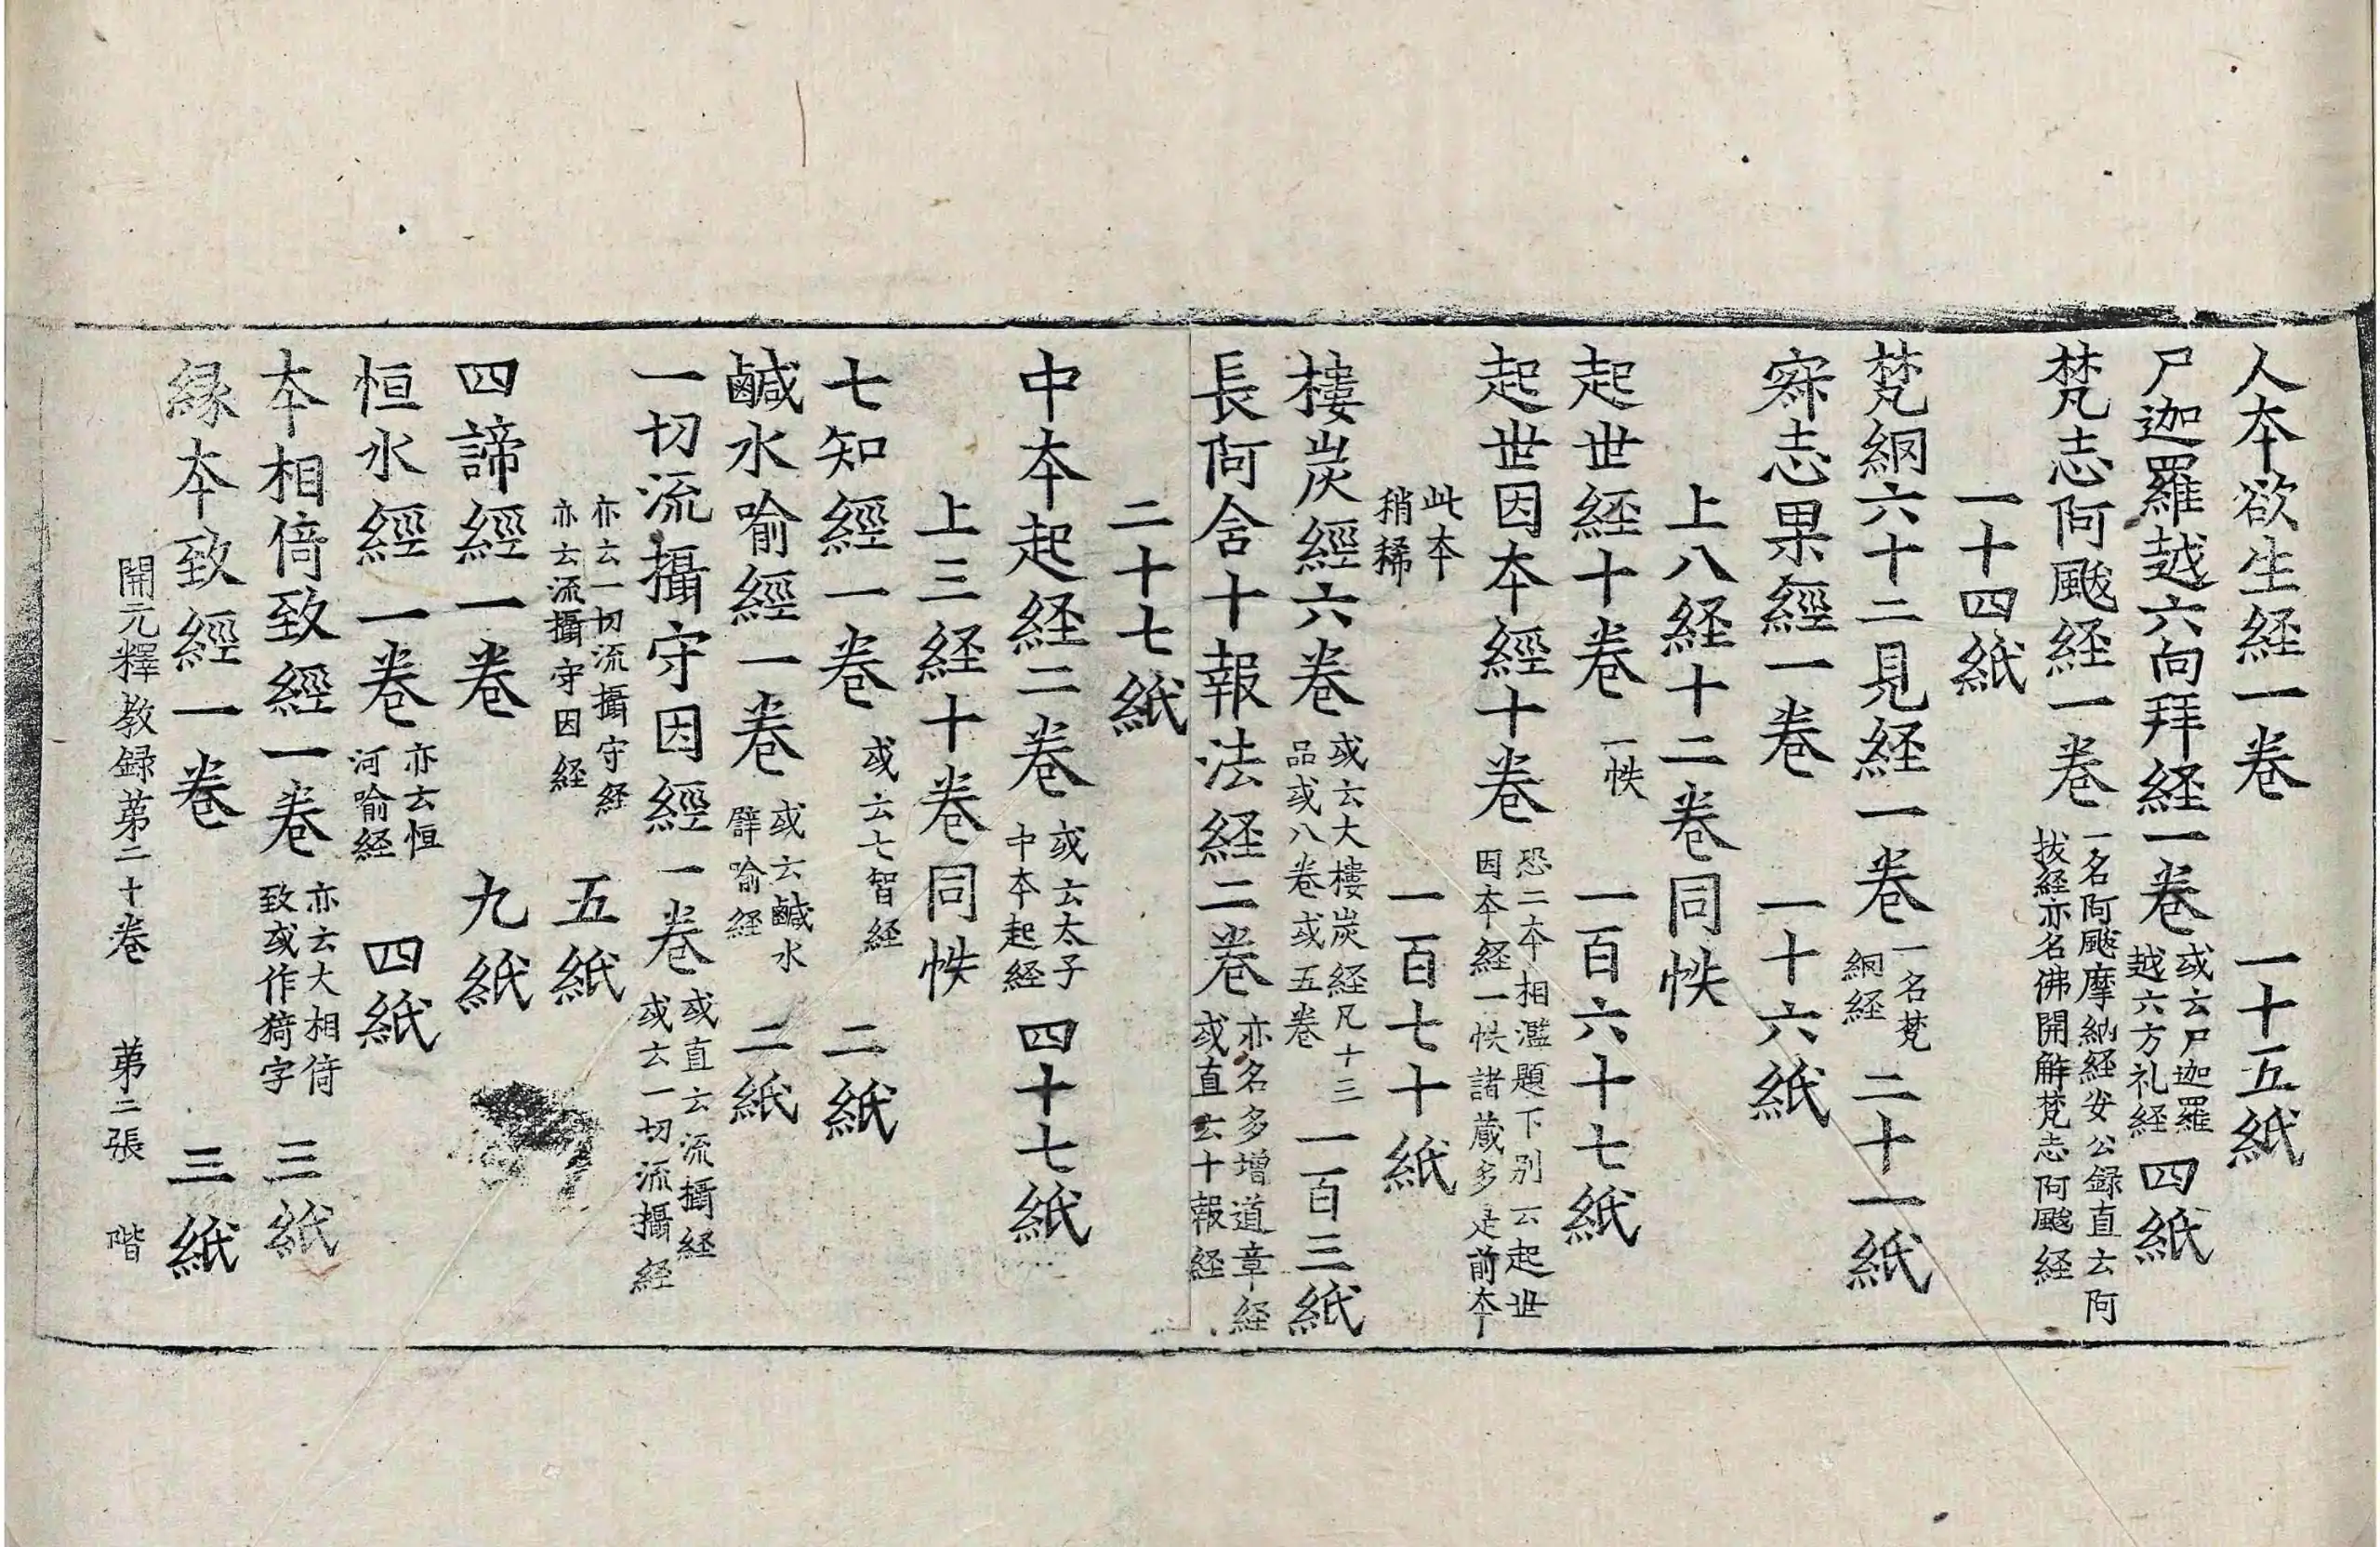 人本欲生経一卷 一十五紙
尸迦羅越六向拜経一卷 或云尸迦羅越六方礼経 四紙
梵志阿颰経一卷 一名阿颰摩納経安公録直云阿拔経亦名佛開解梵志阿颰経
一十四紙
梵網六十二見経一卷 一名梵網経 二十一紙
寂志果經一卷 一十六紙
上八経十二卷同帙
起世経十卷 一帙 一百六十七紙
起世因本經十卷 恐二本相濫題下別云起世因本経一帙諸蔵多是前本
此本稍稀 一百七十紙
樓炭經六卷 或云大樓炭経凡十三品或八卷或五卷 一百三紙
長阿含十報法経二卷 亦名多增道章経或直云十報経
二十七紙
中本起経二卷 或云太子中本起経 四十七紙
上三経十卷同帙
七知經一卷 或云七智経 二紙
鹹水喻經一卷 或云鹹水譬喻経 二紙
一切流攝守因經一卷 或直云流攝経或云一切流攝経
亦云一切流攝守経亦云流攝守因経 五紙
四諦經一卷 九紙
恒水經一卷 亦云恒河喻経 四紙
本相倚致經一卷 亦云大相倚致或作猗字 三紙
縁本致經一卷 三紙
開元釋教録苐二十卷 苐二張 階